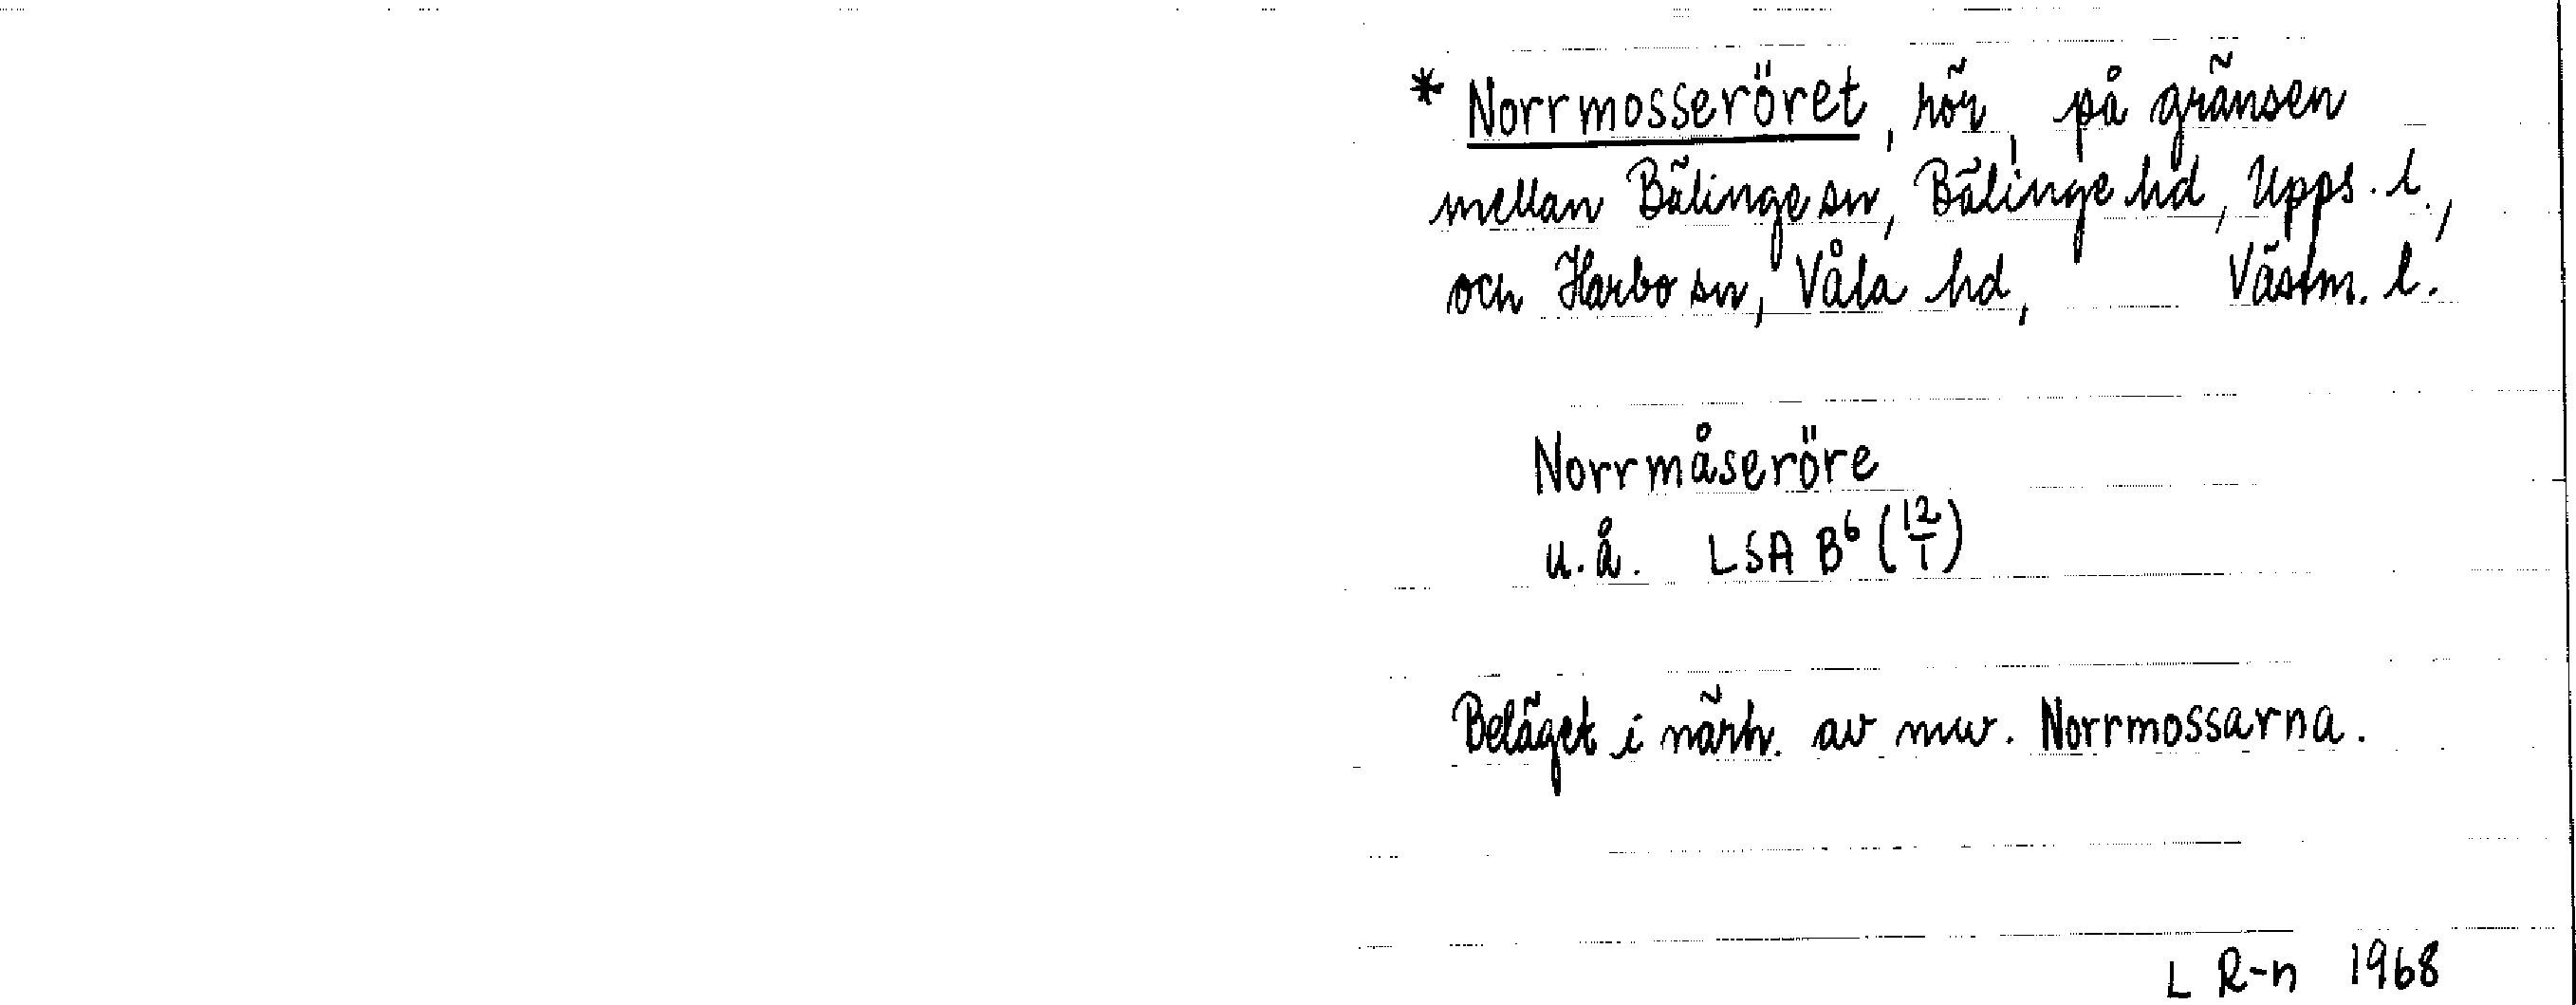 * Norrmosseröret, rör, på gränsen
mellan Bälinge sn, Bälinge hd, Upps. l.,
och Harbo sn, Våla hd, Västm. l.
Norrmåseröre
u.å. LSA B⁶ (12/1)
Beläget i närh. av nuv. Norrmossarna.
L R-n 1968